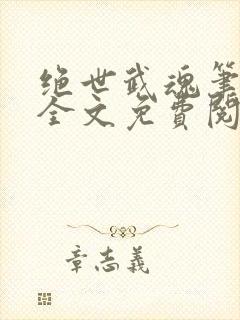 绝世武魂笔
全文免费阅
章志義